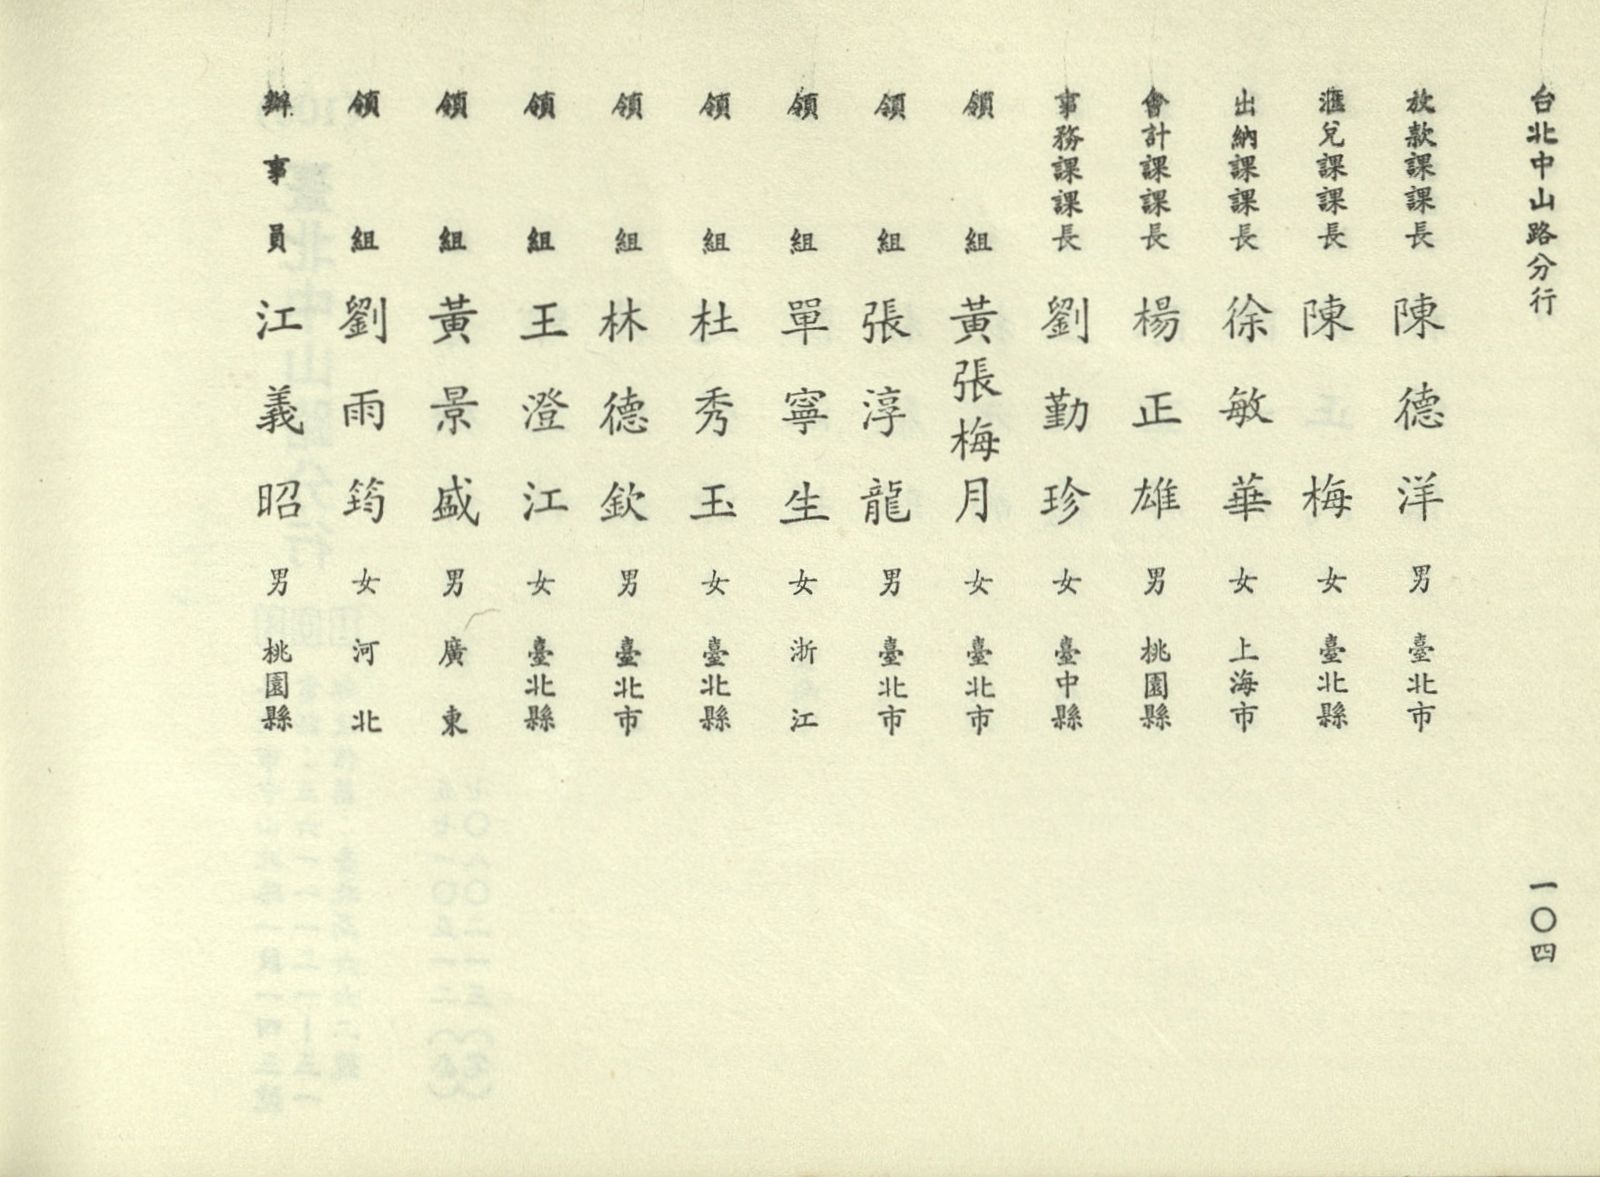 台北中山路分行
一〇四
放款課課長 陳德洋 男 臺北市
滙兌課課長 陳梅 女 臺北縣
出納課課長 徐敏華 女 上海市
會計課課長 楊正雄 男 桃園縣
事務課課長 劉勤珍 女 臺中縣
領組 黃張梅月 女 臺北市
領組 張淳龍 男 臺北市
領組 單寧生 女 浙江
領組 杜秀玉 女 臺北縣
領組 林德欽 男 臺北市
領組 王澄江 女 臺北縣
領組 黃景盛 男 廣東
領組 劉雨筠 女 河北
辦事員 江義昭 男 桃園縣